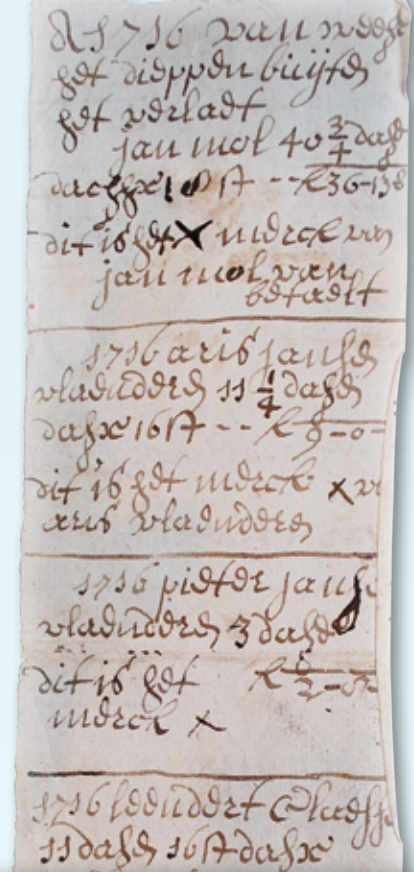 A 1716 van weeh
het dieppen buijten
het verlaet
jan mol 40 3/4 dahe
dachx 18 st -- R 36-13-8
dit is het X merck van
jan mol van
betaelt
1716 aris janse
vlaenderen 11 1/4 dahen
dahx 16 st -- R 9-0-
dit is het merck x v
aris vlaenderen
1716 pieter jans
vlaenderen 3 dahen
dit is het R 2-8-
merck x
1716 leendert Claesse
11 dahen 16 st dahx